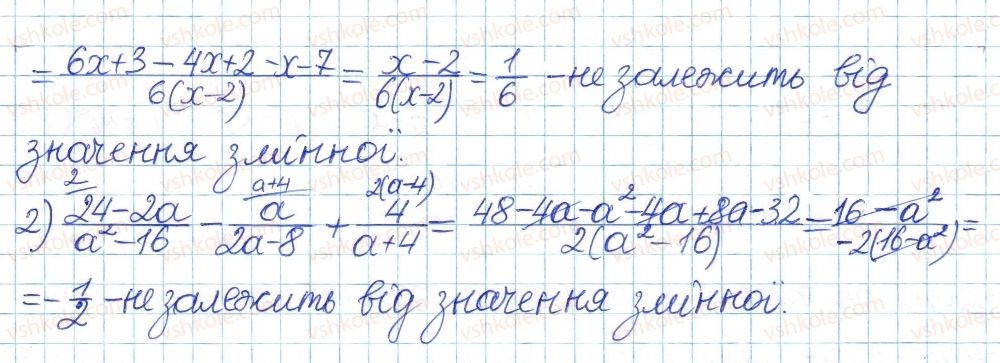 = (6x+3-4x+2-x-7)/(6(x-2)) = (x-2)/(6(x-2)) = 1/6 - не залежить від
значення змінної.
2) (24-2a)/(a²-16) ^2 - a/(2a-8) ^a+4 + 4/(a+4) ^2(a-4) = (48-4a-a²-4a+8a-32)/(2(a²-16)) = (16-a²)/(-2(16-a²)) =
= -1/2 - не залежить від значення змінної.